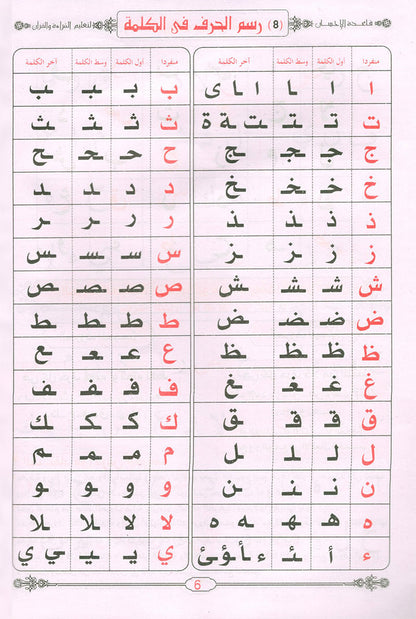 قاعدة الإحسان (8) رسم الحرف في الكلمة لتعليم القراءة والقرآن
منفردا أول الكلمة وسط الكلمة آخر الكلمة منفردا أول الكلمة وسط الكلمة آخر الكلمة
ا ا ـا ـا ا ى ب بـ ـبـ ـب
ت تـ ـتـ ـت ـة ة ث ثـ ـثـ ـث
ج جـ ـجـ ـج ح حـ ـحـ ـح
خ خـ ـخـ ـخ د د ـد ـد
ذ ذ ـذ ـذ ر ر ـر ـر
ز ز ـز ـز س سـ ـسـ ـس
ش شـ ـشـ ـش ص صـ ـصـ ـص
ض ضـ ـضـ ـض ط طـ ـطـ ـط
ظ ظـ ـظـ ـظ ع عـ ـعـ ـع
غ غـ ـغـ ـغ ف فـ ـفـ ـف
ق قـ ـقـ ـق ك كـ ـكـ ـك
ل لـ ـلـ ـل م مـ ـمـ ـم
ن نـ ـنـ ـن و و ـو ـو
ه هـ ـهـ ـه ه لا لا ـلا ـلا
ء أ ـئـ ء أ ؤ ئ ي يـ ـيـ ـي ي
6